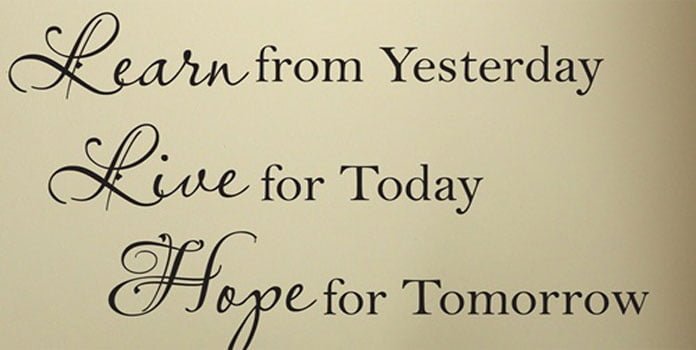 Learn from Yesterday
Live for Today
Hope for Tomorrow